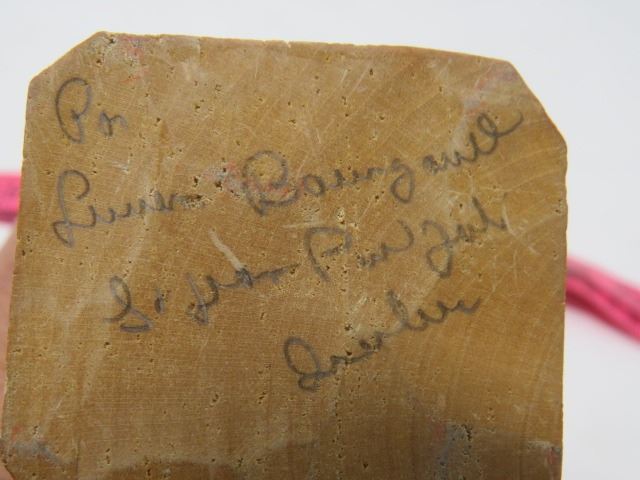 Par
Lucien Bourgault
St Jean Port Joli
Quebec